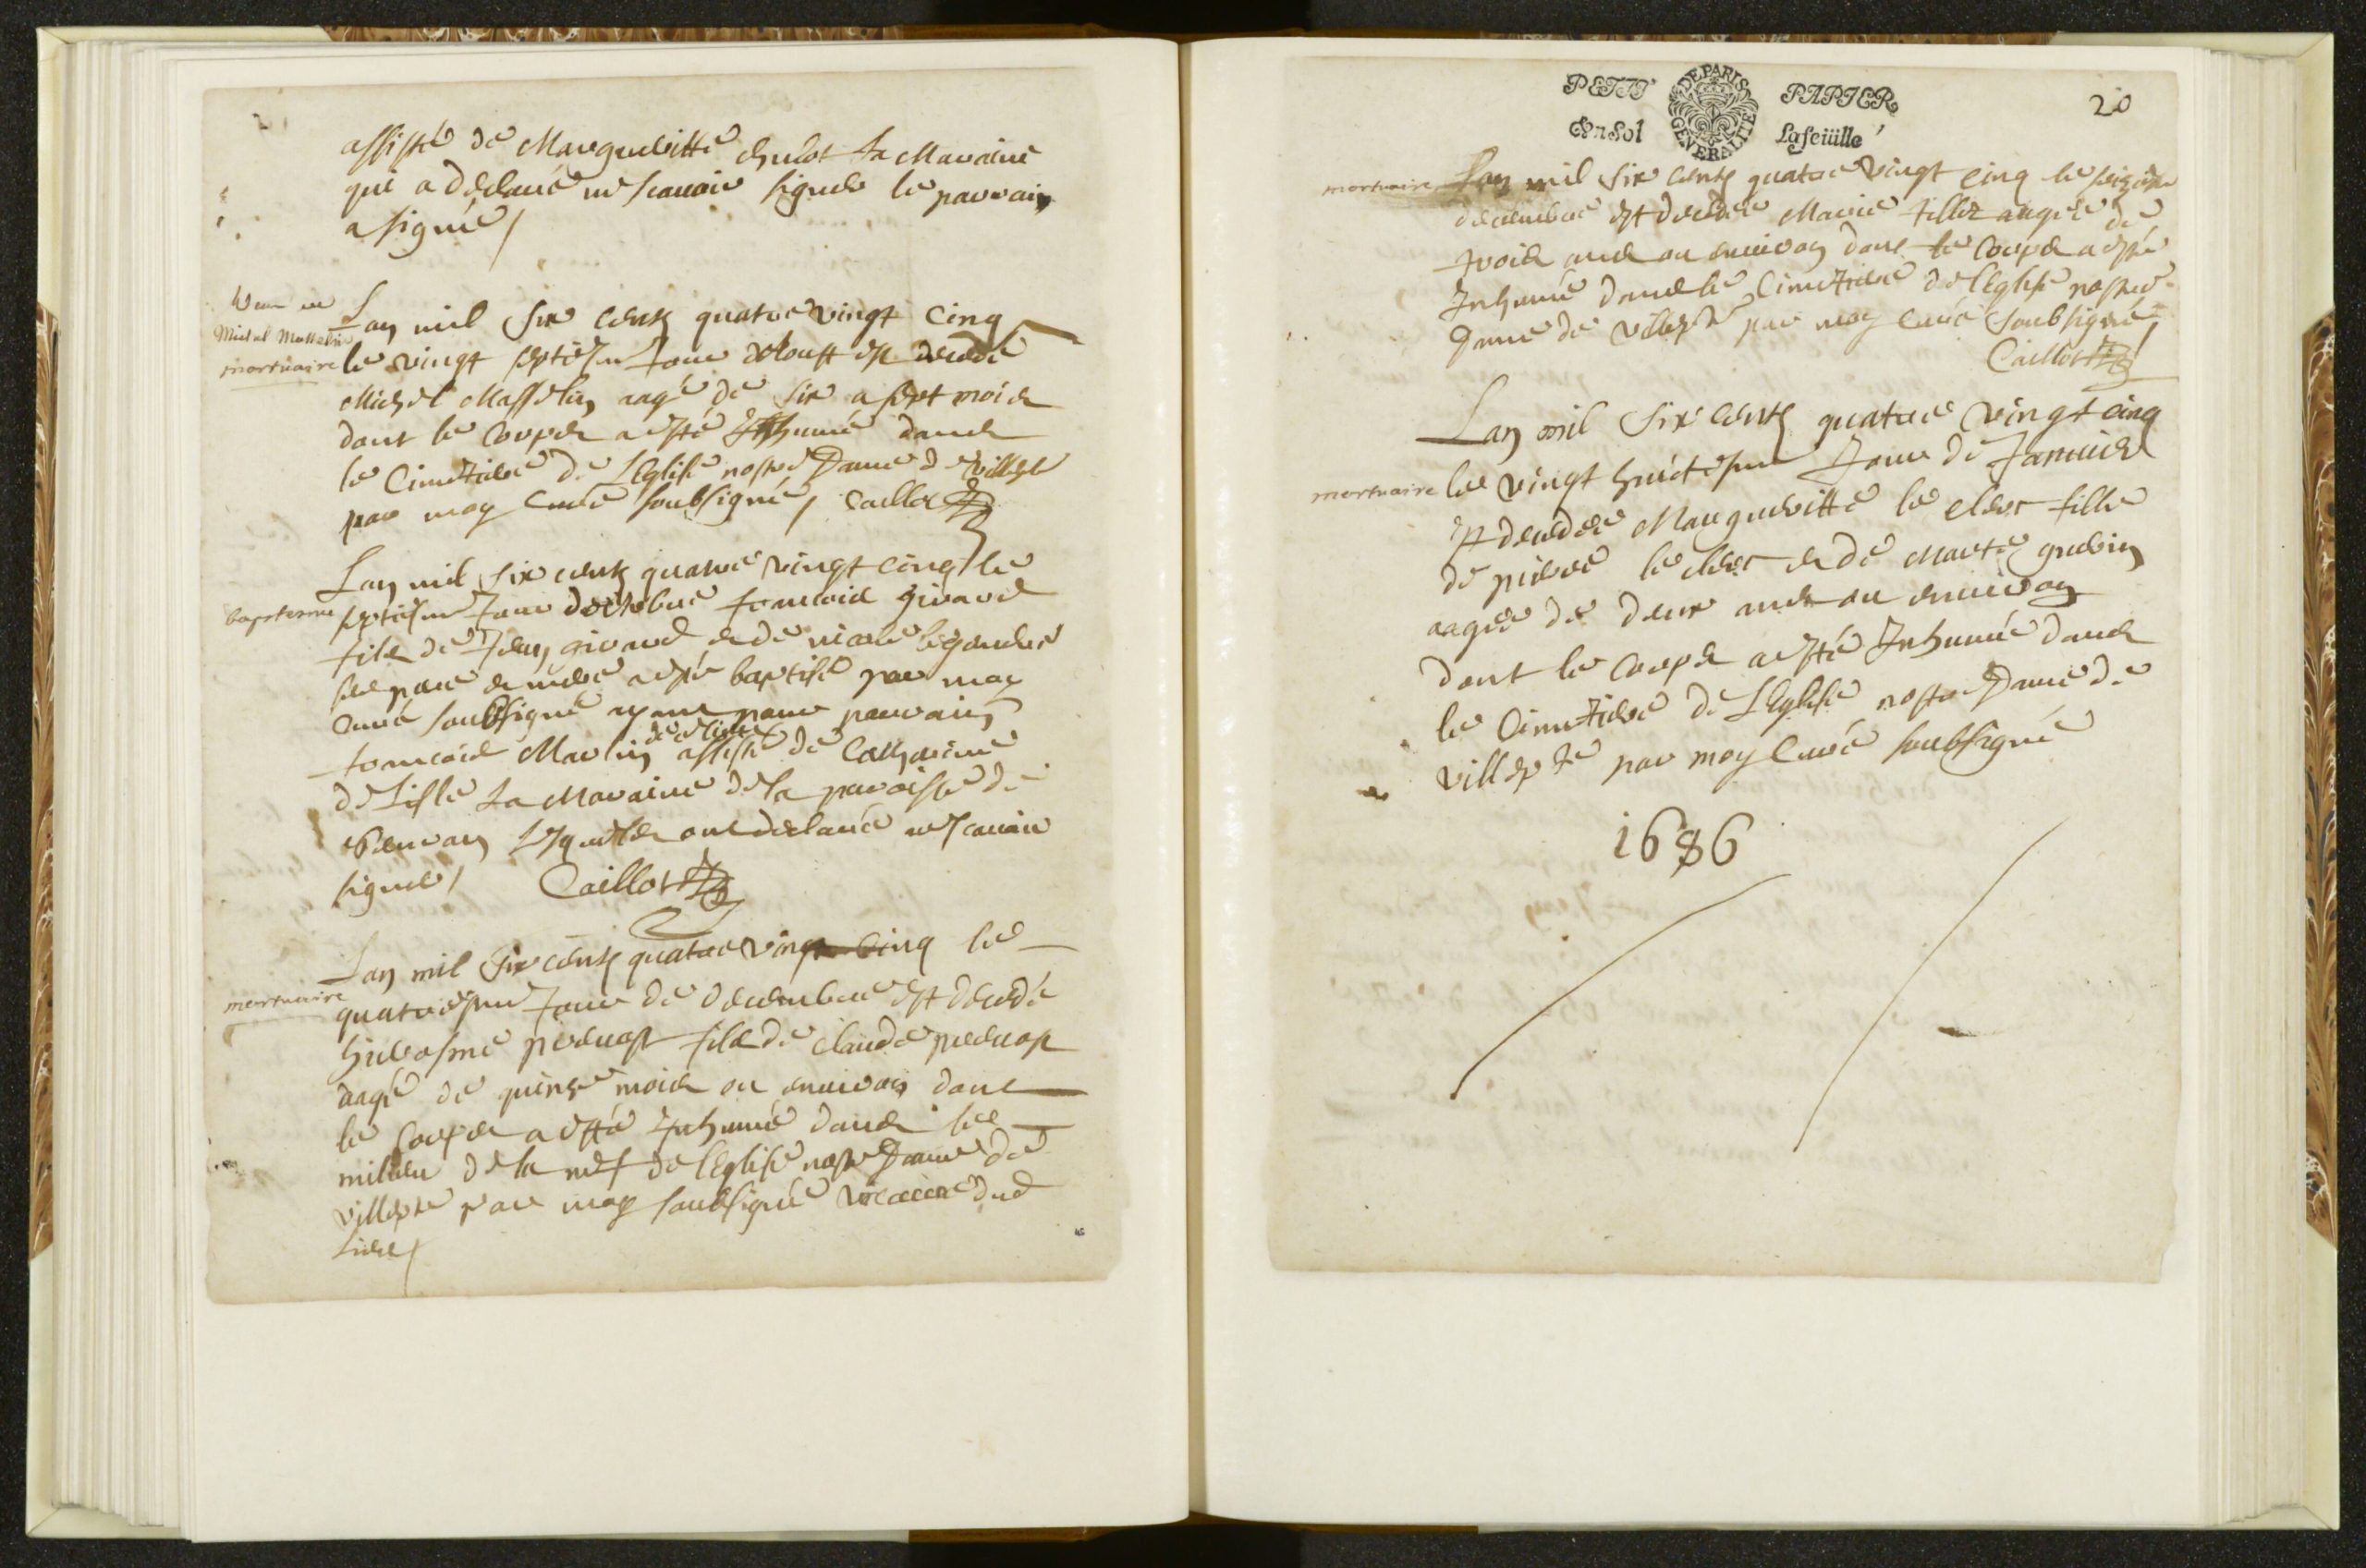 assisté de Margueritte hulot sa Maraine
qui a declaré ne scauoir signer le parrain
a signé /
Michel Masselin
mortuaire
Lan mil six cents quatre vingt cinq
le vingt septiesme Jour daoust est decedé
Michel Masselin aagé de six a sept mois
dont le corps a esté Inhumé dans
le Cimetiere de LEglise nostre Dame de villepte
par moy Curé soubsigné / Caillot
baptesme
Lan mil six cents quatre vingt cinq le
septiesme Jour doctobre francois girard
fils de Jean girard et de nicole legendre
ses pere et mere a esté baptisé par moy
Curé soubsigné ayant pour parrain
francois Martin assisté de Catherine
de Lisle sa Maraine de la paroisse de
lesquels ont declaré ne scauoir
signer / Caillot
mortuaire
Lan mil six cents quatre vingt cinq le
quatriesme Jour de decembre est decedé
hierosme preuost fils de claude preuost
aagé de quinze mois ou enuiron dont
le corps a esté Inhumé dans le
milieu de la nef de lEglise nostre Dame de
villepte par moy soubsigné vicaire dud
Lieu /
PETIT PAPIER
En Sol La feüille
GENERALITE DE PARIS
20
mortuaire
Lan mil six cents quatre vingt cinq le seiziesme
decembre est decedée Marie fillez aagée de
trois ans ou enuiron dont le corps a esté
Inhumé dans le Cimetiere de lEglise nostre
Dame de villepte par moy Curé soubsigné /
Caillot
mortuaire
Lan mil six cents quatre vingt cinq
le vingt huictiesme Jour de Januier
est decedée Margueritte le clerc fille
de pierre le clerc et de Marte guerin
aagée de deux ans ou enuiron
dont le corps a esté Inhumé dans
le Cimetiere de LEglise nostre Dame de
villepte par moy Curé soubsigné
1686